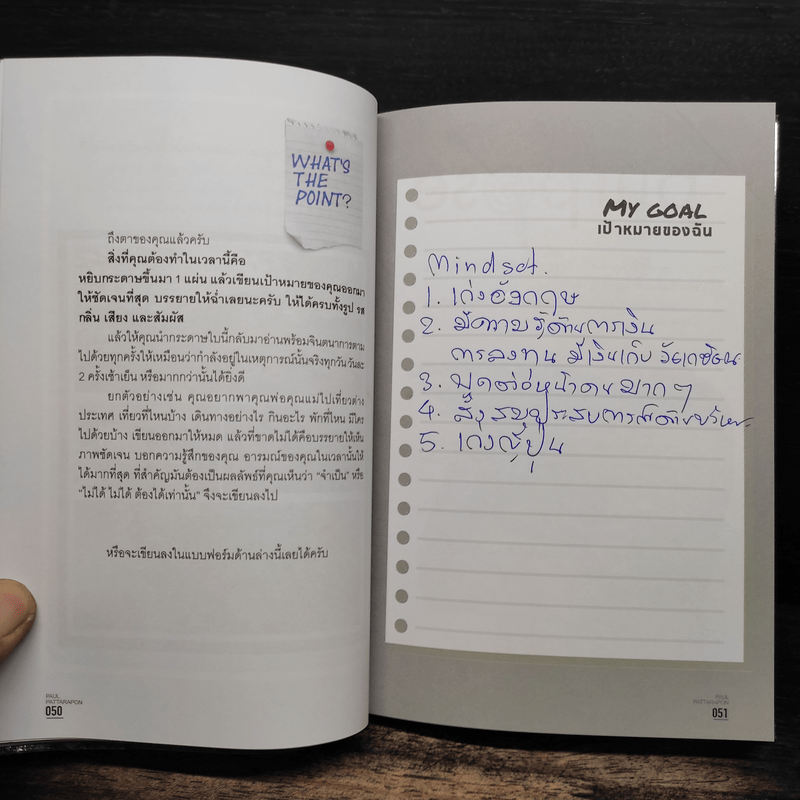 WHAT'S
THE
POINT?
ถึงตาของคุณแล้วครับ
สิ่งที่คุณต้องทำในเวลานี้คือ
หยิบกระดาษขึ้นมา 1 แผ่น แล้วเขียนเป้าหมายของคุณออกมา
ให้ชัดเจนที่สุด บรรยายให้ฉ่ำเลยนะครับ ให้ได้ครบทั้งรูป รส
กลิ่น เสียง และสัมผัส
แล้วให้คุณนำกระดาษใบนี้กลับมาอ่านพร้อมจินตนาการตาม
ไปด้วยทุกครั้งให้เหมือนว่ากำลังอยู่ในเหตุการณ์นั้นจริงทุกวัน วันละ
2 ครั้งเช้าเย็น หรือมากกว่านั้นได้ยิ่งดี
ยกตัวอย่างเช่น คุณอยากพาคุณพ่อคุณแม่ไปเที่ยวต่าง
ประเทศ เที่ยวที่ไหนบ้าง เดินทางอย่างไร กินอะไร พักที่ไหน มีใคร
ไปด้วยบ้าง เขียนออกมาให้หมด แล้วที่ขาดไม่ได้คือบรรยายให้เห็น
ภาพชัดเจน บอกความรู้สึกของคุณ อารมณ์ของคุณในเวลานั้นให้
ได้มากที่สุด ที่สำคัญมันต้องเป็นผลลัพธ์ที่คุณเห็นว่า "จำเป็น" หรือ
"ไม่ได้ ไม่ได้ ต้องได้เท่านั้น" จึงจะเขียนลงไป
หรือจะเขียนลงในแบบฟอร์มด้านล่างนี้เลยได้ครับ
PAUL
PATTARAPON
050
MY GOAL
เป้าหมายของฉัน
Mindset.
1. เก่งอังกฤษ
2. มีความรู้ด้านการเงิน
การลงทุน มีเงินเก็บ
3. พูดต่อหน้าคนมาก ๆ
4. สั่งสมประสบการณ์ด้าน
5. เก่งญี่ปุ่น
PAUL
PATTARAPON
051